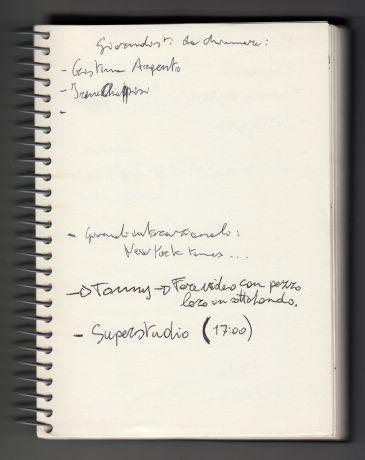 Giornalisti da chiamare:
- Cristina Argento
- Irene
-
- Giornali internazionali:
New York Times...
→ Tommy → Fare video con pezzo
loro in sottofondo.
- Superstudio (17:00)